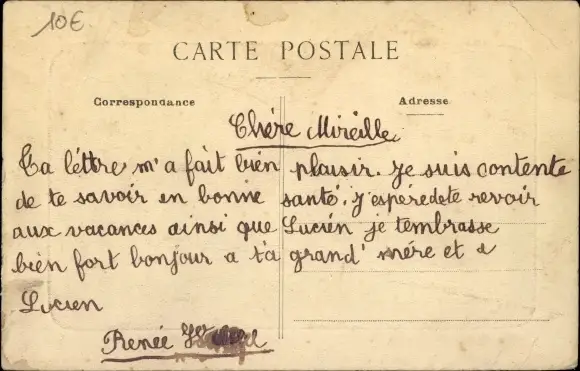 10€
CARTE POSTALE
Correspondance
Adresse
Chére Mireille
Ta léttre m'a fait bien plaisir. Je suis contente
de te savoir en bonne santé. J'espéredete revoir
aux vacances ainsi que Lucien je tembrasse
bien fort bonjour a ta grand' mére et a
Lucien
Renée